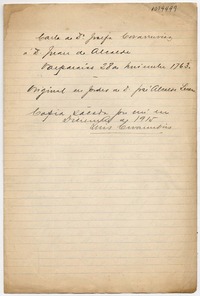 Carta de Dn Josefa Covarrubias
a D. Juan de Alcalde
Valparaíso 28 de noviembre 1763.
Original en poder de D. José Alcalde
Copia sacada por mi en
Diciembre de 1915
Luis Covarrubias